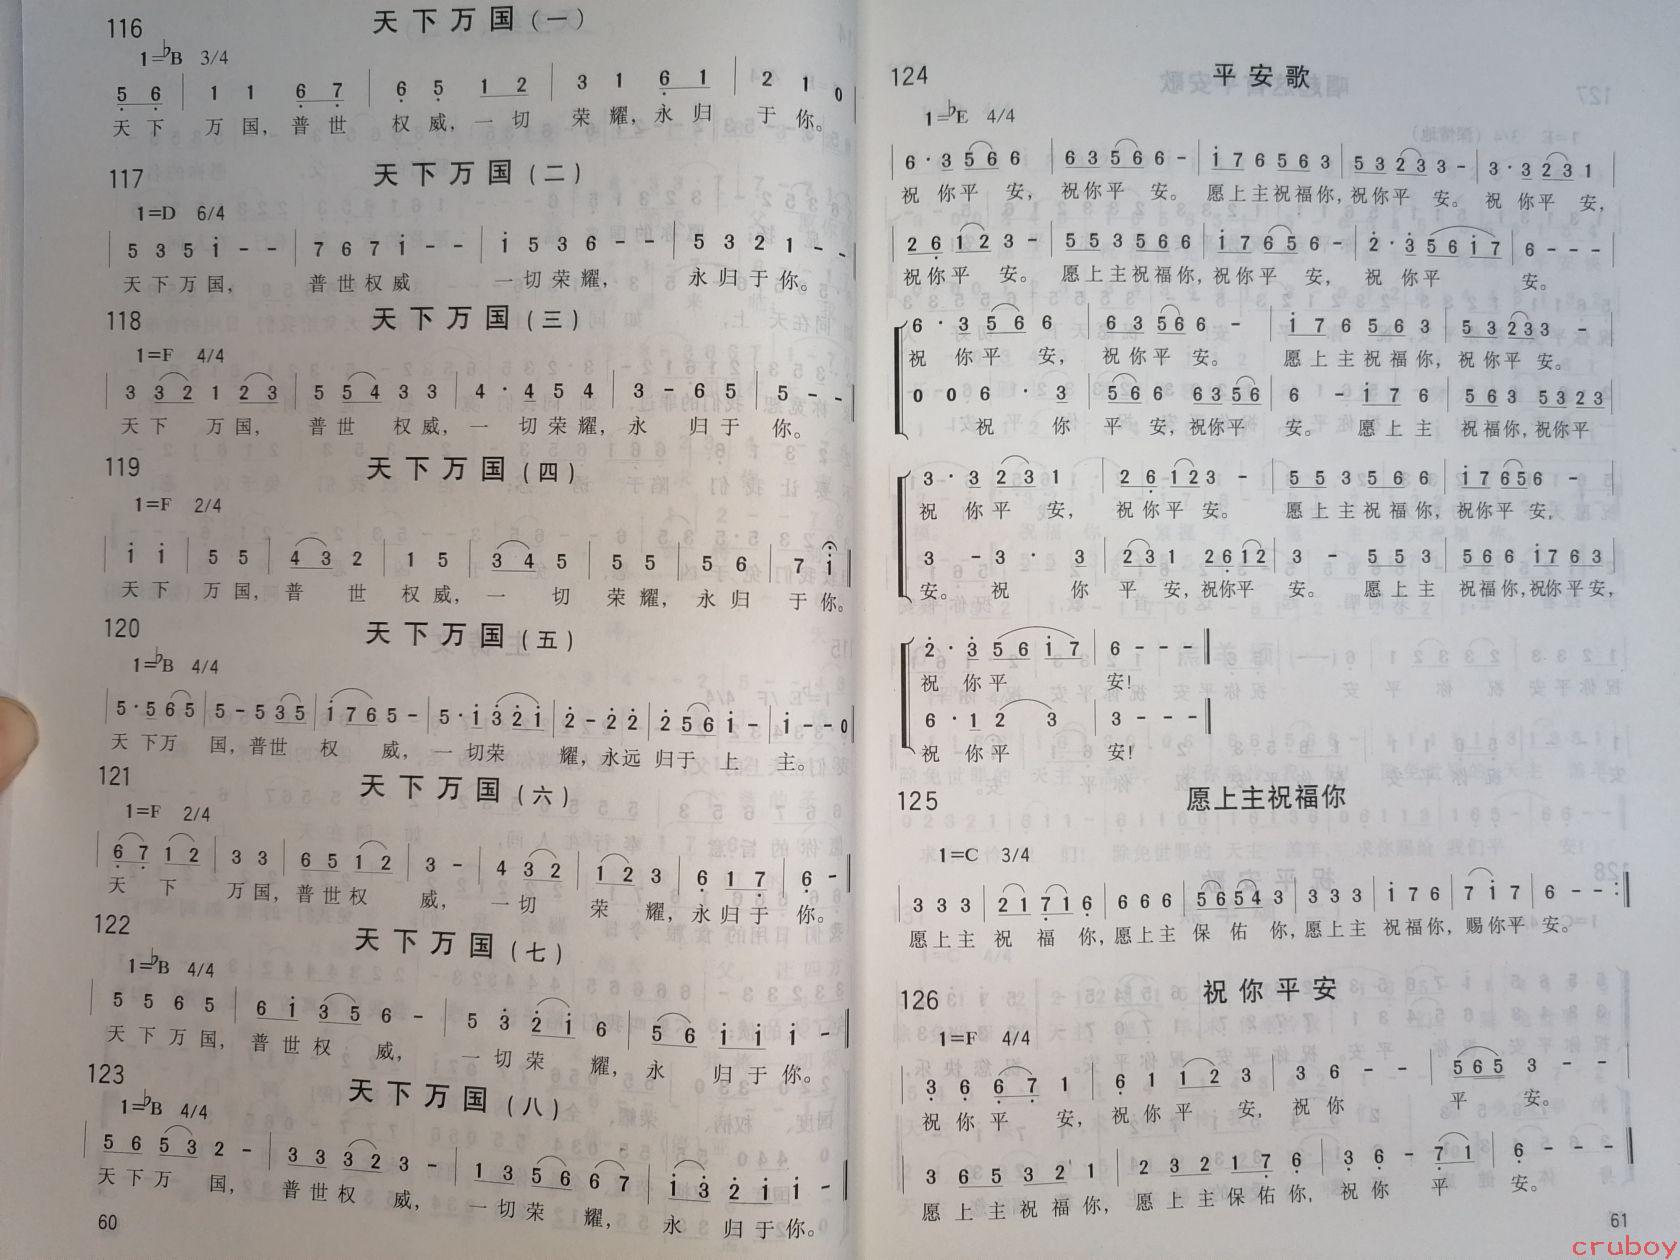 116 天下万国(一)
1=♭B 3/4
5 6 | 1 1 6 7 | 6 5 1 2 | 3 1 6 1 | 2 1 0
天下 万国, 普世 权威, 一切 荣耀, 永归 于你。
117 天下万国(二)
1=D 6/4
5 3 5 i - - | 7 6 7 i - - | i 5 3 6 - - | 5 3 2 1 - -
天下万国, 普世权威 一切荣耀, 永归于你。
118 天下万国(三)
1=F 4/4
3 3 2 1 2 3 | 5 5 4 3 3 | 4 · 4 5 4 | 3 - 6 5 | 5 - -
天下 万国, 普世 权威, 一 切荣耀, 永 归于 你。
119 天下万国(四)
1=F 2/4
i i | 5 5 | 4 3 2 | 1 5 | 3 4 5 | 5 5 | 5 6 | 7 i
天下 万国, 普 世 权威, 一 切 荣耀, 永归 于你。
120 天下万国(五)
1=♭B 4/4
5 · 5 6 5 | 5 - 5 3 5 | i 7 6 5 - | 5 · i 3 2 i | 2 - 2 2 | 2 5 6 i - | i - - 0
天 下万 国, 普世 权 威, 一 切荣 耀, 永远 归于 上 主。
121 天下万国(六)
1=F 2/4
6 7 1 2 | 3 3 | 6 5 1 2 | 3 - | 4 3 2 | 1 2 3 | 6 1 7 | 6 -
天 下 万国, 普世权 威, 一切 荣 耀, 永归于 你。
122 天下万国(七)
1=♭B 4/4
5 5 6 5 | 6 i 3 5 6 - | 5 3 2 i 6 | 5 6 i i i -
天下万国, 普世权 威, 一切荣 耀, 永 归于你。
123 天下万国(八)
1=♭B 4/4
5 6 5 3 2 - | 3 3 3 2 3 - | 1 3 5 6 6 7 | i 3 2 i i -
天下万 国, 普世权 威, 一切荣 耀, 永 归于你。
60
124 平安歌
1=♭E 4/4
6 · 3 5 6 6 | 6 3 5 6 6 - | i 7 6 5 6 3 | 5 3 2 3 3 - | 3 · 3 2 3 1
祝 你平 安, 祝你平 安。 愿上主祝福你, 祝你平 安。 祝 你平 安,
2 6 1 2 3 - | 5 5 3 5 6 6 | i 7 6 5 6 - | 2 · 3 5 6 i 7 | 6 - - -
祝你平 安。 愿上主祝福你, 祝你平 安, 祝 你平 安。
6 · 3 5 6 6 | 6 3 5 6 6 - | i 7 6 5 6 3 | 5 3 2 3 3 -
祝 你平 安, 祝你平 安。 愿上主祝福你, 祝你平 安。
0 0 6 · 3 | 5 6 6 6 3 5 6 | 6 - i 7 6 | 5 6 3 5 3 2 3
祝 你 平 安, 祝你平 安。 愿上主 祝福你, 祝你平
3 · 3 2 3 1 | 2 6 1 2 3 - | 5 5 3 5 6 6 | i 7 6 5 6 -
祝 你平 安, 祝你平 安。 愿上主祝福你, 祝你平 安,
3 - 3 · 3 | 2 3 1 2 6 1 2 | 3 - 5 5 3 | 5 6 6 i 7 6 3
安。 祝 你 平 安, 祝你平 安。 愿上主 祝福你, 祝你平安,
2 · 3 5 6 i 7 | 6 - - -
祝 你平 安!
6 · 1 2 3 | 3 - - -
祝 你平 安!
125 愿上主祝福你
1=C 3/4
3 3 3 | 2 1 7 1 6 | 6 6 6 | 5 6 5 4 3 | 3 3 3 | i 7 6 | 7 i 7 | 6 - - :
愿上主 祝 福 你, 愿上主 保 佑 你, 愿上主 祝福你, 赐你平 安。
126 祝你平安
1=F 4/4
3 6 6 7 1 | 6 1 1 2 3 | 3 6 - - | 5 6 5 3 - -
祝你平 安, 祝你平 安, 祝你 平 安。
3 6 5 3 2 1 | 2 3 2 1 7 6 | 3 6 - 7 1 | 6 - - -
愿上主祝福你, 愿上主保佑你, 祝你 平 安。
61
cruboy